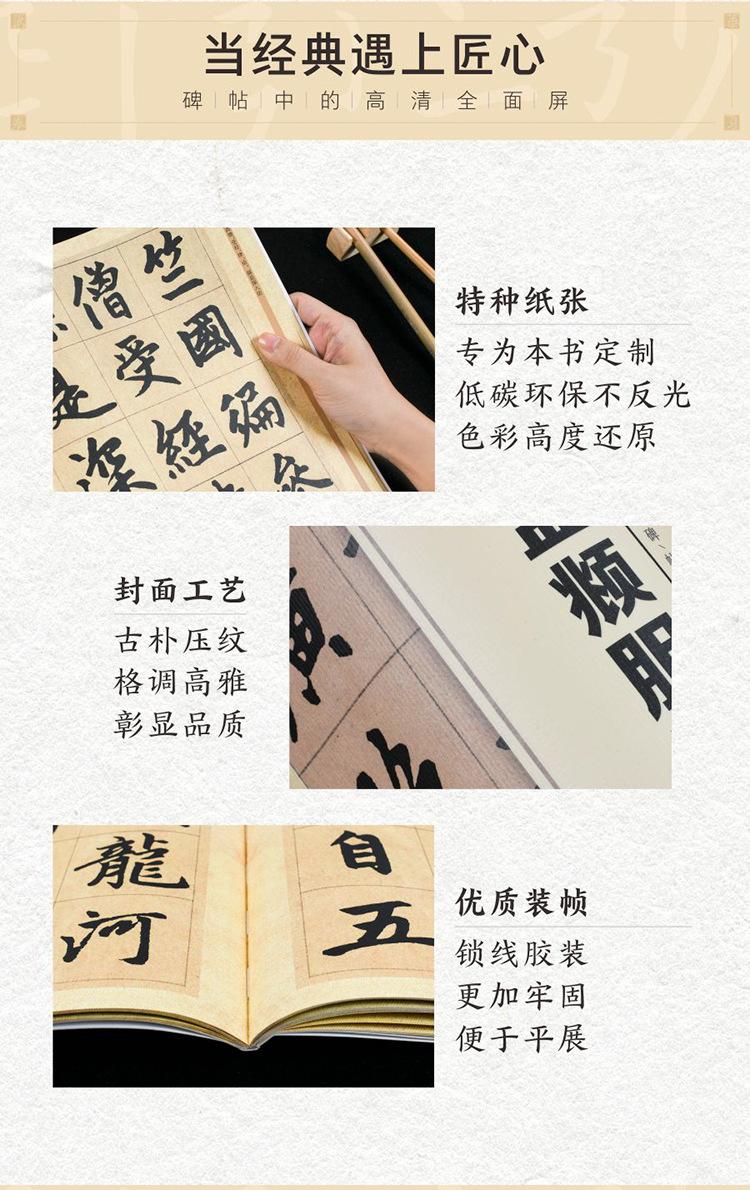 当经典遇上匠心
碑帖中的高清全面屏
竺
僧
國
受
是
編
經
深
特种纸张
专为本书定制
低碳环保不反光
色彩高度还原
频
服
碑
封面工艺
古朴压纹
格调高雅
彰显品质
龍
河
自
五
优质装帧
锁线胶装
更加牢固
便于平展